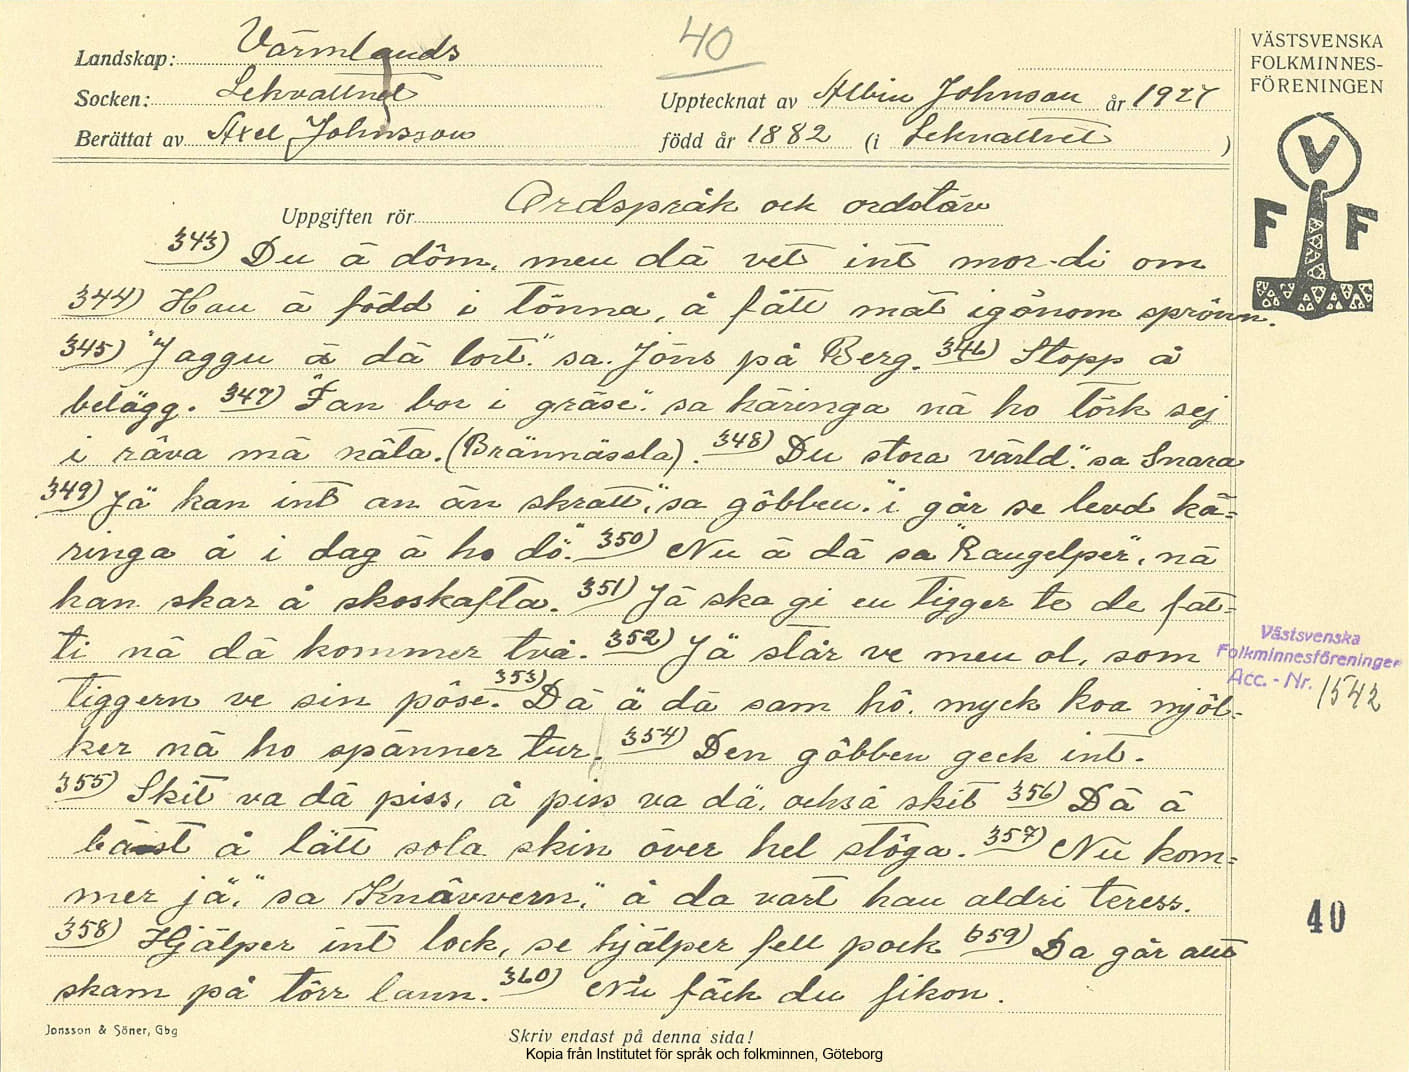 40
Landskap: Värmlands
Socken: Lekvattnet
Upptecknat av Albin Johnson år 1927
Berättat av Axel Johnsson
född år 1882 (i Lekvattnet )
VÄSTSVENSKA
FOLKMINNES-
FÖRENINGEN
V
F F
Uppgiften rör Ordspråk och ordstäv
343) Du ä döm, men dä vet int mor di om
344) Han ä född i tönna, å fått mat igönom sprönn.
345) "Jaggu ä dä lort." sa Jöns på Berg. 346) Stopp å
belägg. 347) "Fan bor i gräse". sa käringa nä ho törk sej
i räva mä näta. (Brännässla). 348) Du stora värld." sa Snara
349) Jä" kan int an än skratt", sa gôbben. "i går se levd kä=
ringa å i dag ä ho dö". 350) Nu ä dä sa "Raugelper", nä
han skar å skoskafta. 351) Jä ska gi en tigger te de fat=
ti nä dä kommer två. 352) Jä står ve men ol, som
tiggern ve sin pôse. 353) Dä ä dä sam hô. myck koa mjöl-
ker nä ho spänner tur. 354) Den gôbben geck int.
355) Skit va dä piss, å piss va dä, också skit 356) Dä ä
bäst å lätt sola skin över hel stôga. 357) Nu kom=
mer jä", "sa Knävvern", å da vart han aldri teress.
358) Hjälper int lock, se hjälper fell pock 359) Da går alt
skam på törr lann. 360) Nu fäck du fikon.
Västsvenska
Folkminnesföreningen
Acc. - Nr. 1542
40
Jonsson & Söner, Gbg
Skriv endast på denna sida!
Kopia från Institutet för språk och folkminnen, Göteborg